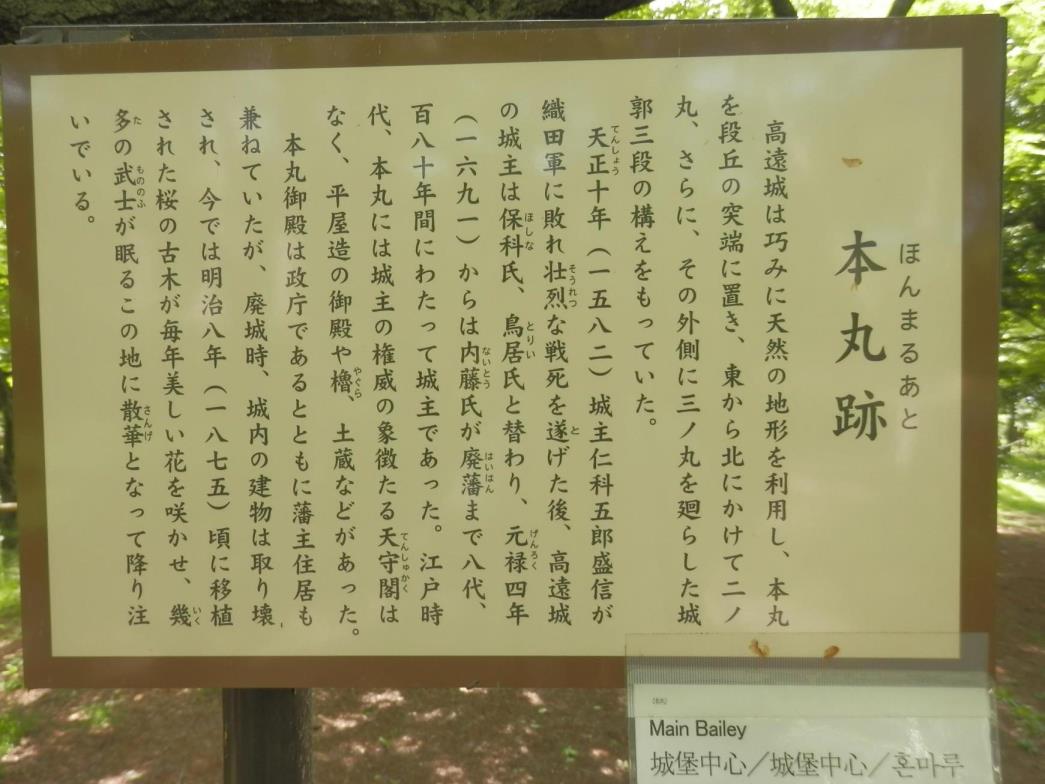 本丸跡
ほんまるあと
高遠城は巧みに天然の地形を利用し、本丸
を段丘の突端に置き、東から北にかけて二ノ
丸、さらに、その外側に三ノ丸を廻らした城
郭三段の構えをもっていた。
天正十年（一五八二）城主仁科五郎盛信が
てんしょう
織田軍に敗れ壮烈な戦死を遂げた後、高遠城
そうれつ
と
の城主は保科氏、鳥居氏と替わり、元禄四年
ほしな
とりい
げんろく
（一六九一）からは内藤氏が廃藩まで八代、
ないとう
はいはん
百八十年間にわたって城主であった。江戸時
代、本丸には城主の権威の象徴たる天守閣は
てんしゅかく
なく、平屋造の御殿や櫓、土蔵などがあった。
やぐら
本丸御殿は政庁であるとともに藩主住居も
兼ねていたが、廃城時、城内の建物は取り壊
され、今では明治八年（一八七五）頃に移植
された桜の古木が毎年美しい花を咲かせ、幾
いく
多の武士が眠るこの地に散華となって降り注
た
もののふ
さんげ
いでいる。
Main Bailey
城堡中心／城堡中心／혼마루